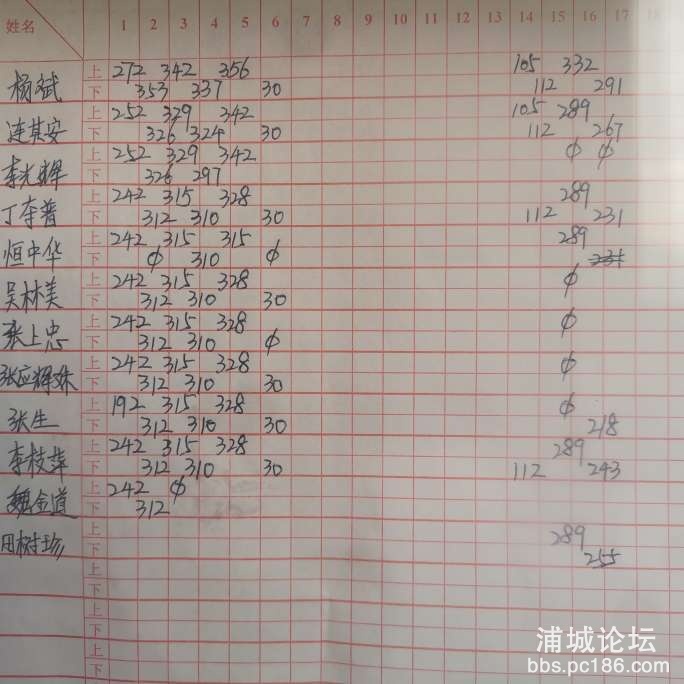 姓名 1 2 3 4 5 6 7 8 9 10 11 12 13 14 15 16 17 18
杨斌 上 272 342 356 105 332
下 353 337 30 112 291
连其安 上 252 329 342 105 289
下 326 324 30 112 267
李光辉 上 252 329 342 ϕ ϕ
下 326 297
丁李普 上 242 315 328 289
下 312 310 30 112 231
恒中华 上 242 315 315 289
下 ϕ 310 ϕ 231
吴林美 上 242 315 328 ϕ
下 312 310 30
张上忠 上 242 315 328 ϕ
下 312 310 ϕ
张应辉妹 上 242 315 328 ϕ
下 312 310 30
张生 上 192 315 328 ϕ
下 312 310 30 218
李枝萍 上 242 315 328 289
下 312 310 30 112 243
魏金道 上 242 ϕ
下 312
田树珍 上 289
下 255
上
下
上
下
上
下
浦城论坛
bbs.pc186.com